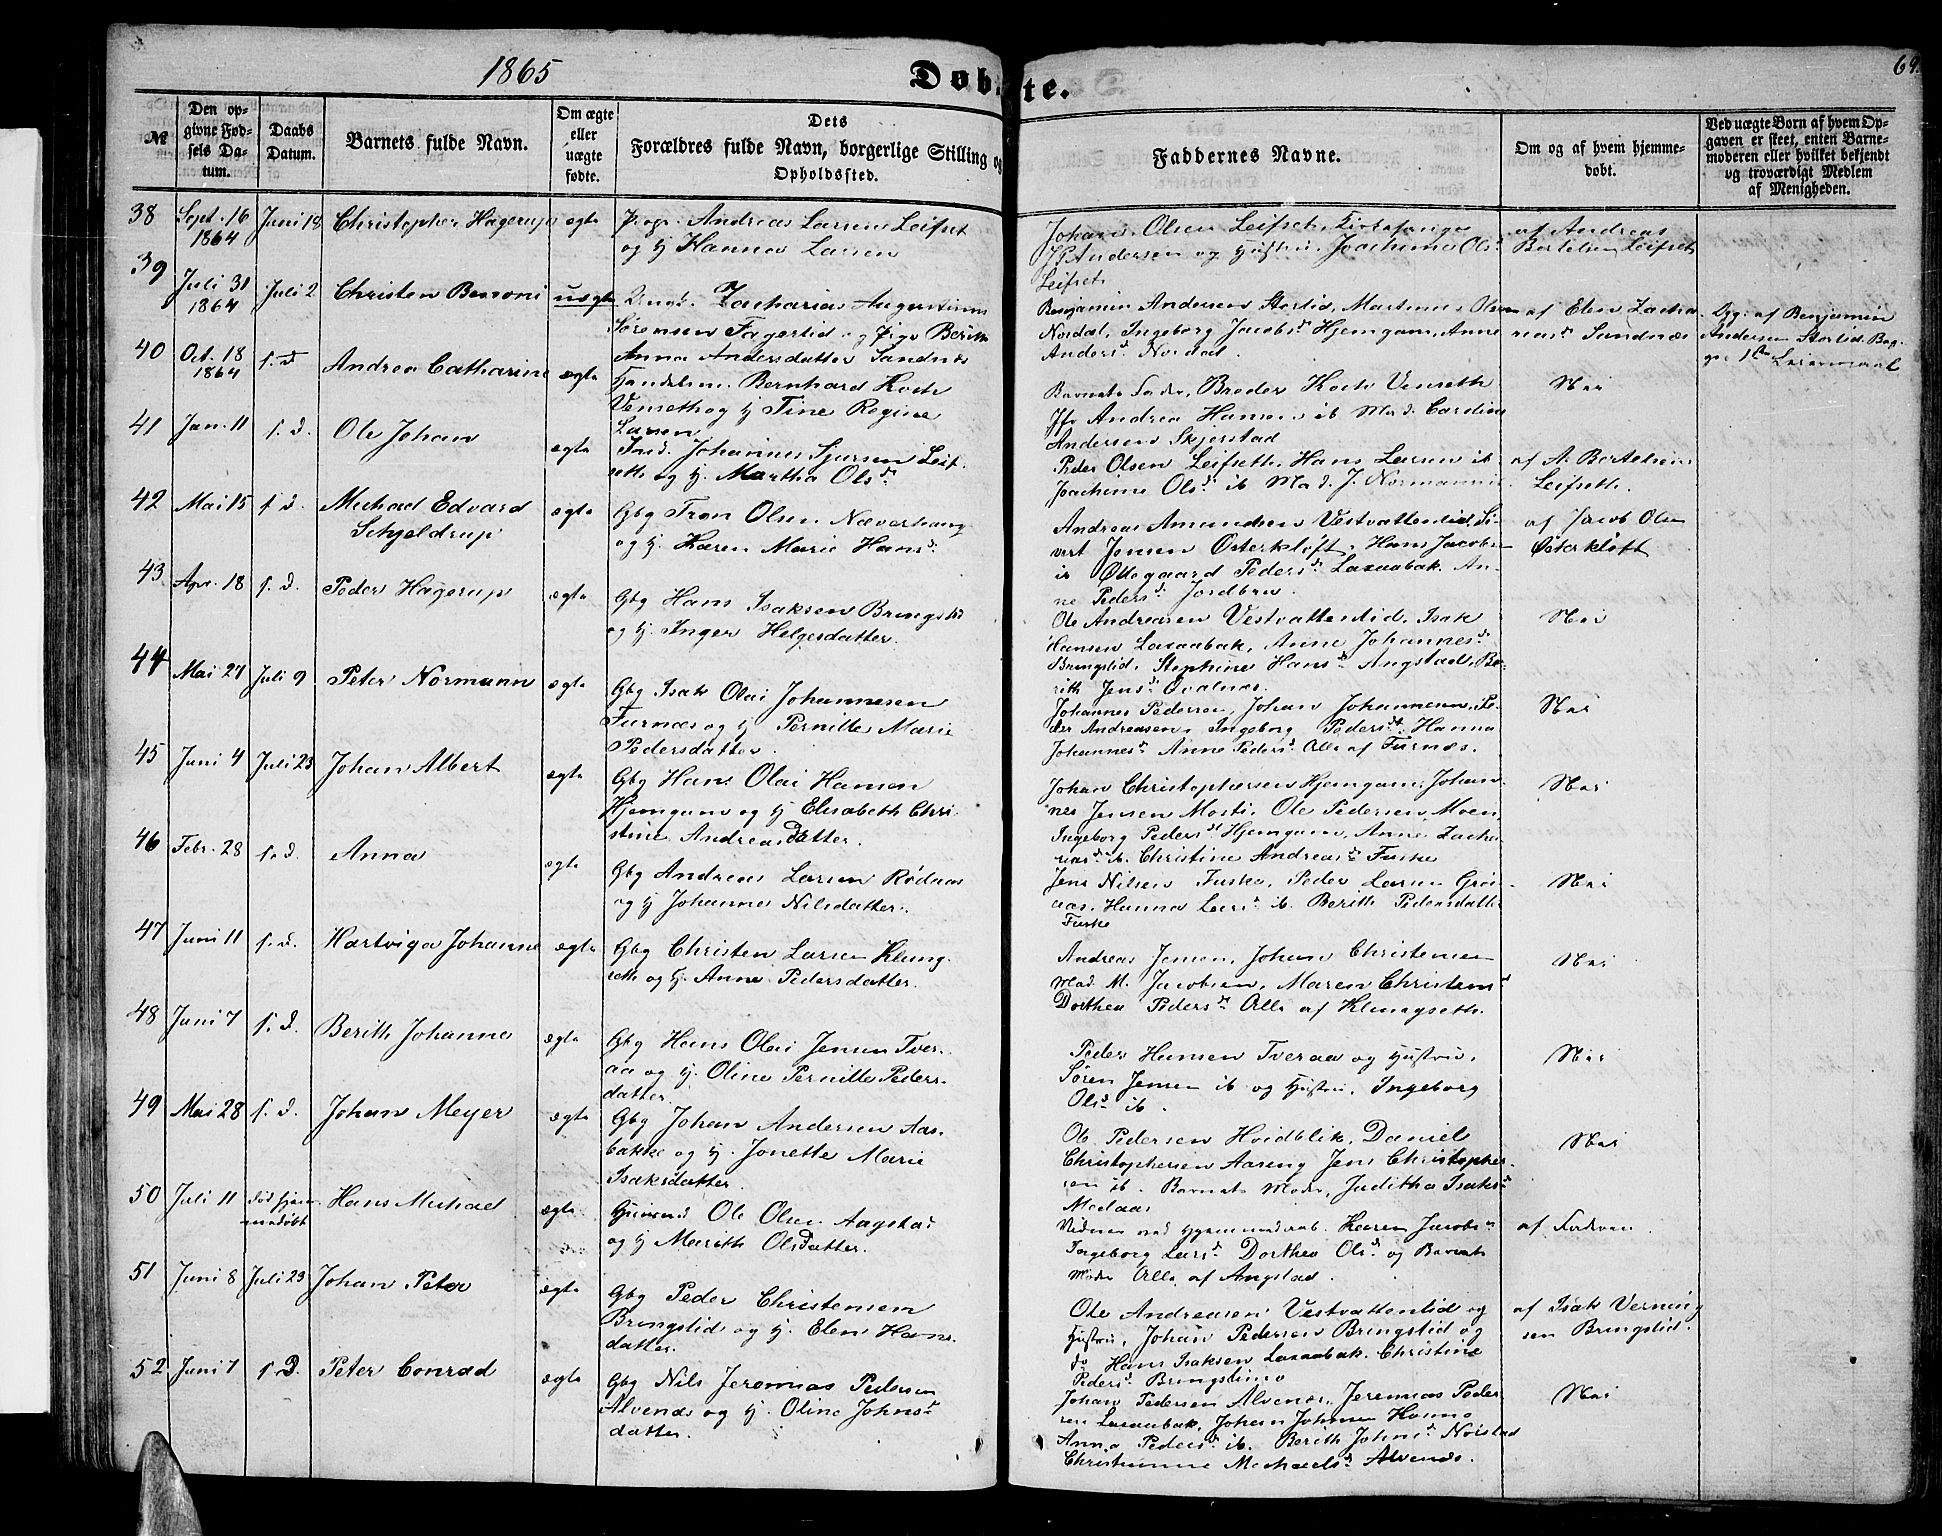 1865
Døbte.
69.
№
Den opgivne Fødsels Datum.
Daabs Datum.
Barnets fulde Navn.
Om ægte eller uægte fødte.
Dets Forældres fulde Navn, borgerlige Stilling og Opholdssted.
Faddernes Navne.
Om og af hvem hjemmedøbt.
Ved uægte Børn af hvem Opgaven er skeet, enten Barnemoderen eller hvilket bekjendt og troværdigt Medlem af Menigheden.
38 Sept. 16 1864 Juni 18 Christopher Hagerup ægte
Andreas Larsen Leifset
og hj Hanna Larsen
Johan Olsen Leifset,
Andersen og Hustru, Joachime Ols
Leifset
af Andreas
Bertelsen Leifset
39 Juli 31 1864 Juli 2 Christen uægte
Ungk. Zacharias Augustinus
Sørensen Fagerlid og Pige Berith
Anna Andersdatter Sandnæs
Benjamin Andersen Storlid, Martinus Olsen
Nordal, Ingeborg Jacobsd Hjemgam, Anne
Andersd Nordal.
af Elen Zacha-
riasd Sandnæs
Opg. af Benjamin
Andersen Storlid. Beg-
ges 1ste Leiermaal
40 Oct. 18 1864 s. D. Andrea Catharine ægte
Handelsm. Bernhard Koch
Venset og hj Tine Regine
Larsen
Barnets Fader, Broder Koch Venseth
Jfr Andrea Hansen ib Mad. Cardine
Andersen Skjerstad
Nei
41 Jan. 11 s. D. Ole Johan ægte
Ind. Johannes Sjursen Leif-
seth og hj. Martha Olsd
Peder Olsen Leifseth, Hans Larsen ib
Joachime Olsd ib Mad. J. Normann
af A. Bertelsen
Leifseth.
42 Mai 15 s. D. Michael Edvard
Schjeldrup ægte
Gbg Tron Olsen Næverhaug
og hj. Karen Marie Hansd.
Andreas Amundsen Vestvattenlid, Si-
vert Jensen Østerkløft, Hans Jacobs
Ødegaard Pedersd Laxaabak. An-
ne Pedersd Jordbru.
af Jacob Olsen
Østerkløft
43 Apr. 18 s. D. Peder Hagerup ægte
Gbg Hans Isaksen Bringslid
og hj. Inger Helgesdatter.
Ole Andreasen Vestvattenlid, Isak
Hansen Laxaabak, Anne Johannesd
Bringslid, Stephine Hansd Angstad, Be-
rith Jensd Qvalnæs.
Nei
44 Mai 27 Juli 9 Peter Normann ægte
Gbg Isak Olai Johannesen
Furnæs og hj Pernille Marie
Pedersdatter.
Johannes Pedersen, Johan Johannesen, Pe-
der Andreasen, Ingeborg Pedersdt Hanna
Johannesd Anne Pedersd Alle af Furnæs.
Nei
45 Juni 4 Juli 23 Johan Albert ægte
Gbg Hans Olai Hansen
Hjemgam og hj Elisabeth Chri-
stine Andreasdatter.
Johan Christophersen Hjemgam, Johan-
nes Jensen Mosti, Ole Pedersen Moen
Ingeborg Pedersdt Hjemgam, Anne Zacha-
riasd ib. Christine Andreasd Fuske
Nei
46 Febr. 28 s. D. Anna ægte
Gbg Andreas Larsen Rødaas
og hj Johanna Nilsdatter.
Jens Nilsen Fuske, Peder Larsen Grøn-
aas, Hanna Larsd ib. Berith Pedersdatter
Fuske
Nei
47 Juni 11 s. D. Hartviga Johanne ægte
Gbg Christen Larsen Klung-
seth og hj. Anne Pedersdatter.
Andreas Jensen, Johan Christensen
Mad. M. Jacobsen, Maren Christensd
Dorthea Pedersd Alle af Klungseth.
Nei
48 Juni 7 s. D. Berith Johanna ægte
Gbg Hans Olai Jensen Tver-
aa og hj. Oline Pernille Peders-
datter.
Peder Hansen Tveraa og Hustru,
Søren Jensen ib og Hustru, Ingeborg
Olsd ib.
Nei
49 Mai 28 s. D. Johan Meyer ægte
Gbg Johan Andersen Aas-
bakke og hj. Jonette Marie
Isaksdatter.
Ole Pedersen Hvidblik, Daniel
Christophersen Aaseng Jens Christopher-
sen ib. Barnets Moder, Juditha Isaksd
Medaas
Nei
50 Juli 11 død hjem-
medøbt Hans Michael ægte
Ole Olsen Aagstad
og hj Marith Olsdatter.
Vidner ved Hjemmedaab. Karen Jacobsd
Ingeborg Larsd Dorthea Olsd og Barnets
Moder Alle af Angstad.
af Fadren
51 Juni 8 Juli 23 Johan Peter ægte
Gbg Peder Christensen
Bringslid og hj. Elen Hans-
datter.
Ole Andreasen Vestvattenlid og
Hustru, Johan Pedersen Bringslid og
do Hans Isaksen Laxaabak. Christine
Pedersd Bringslid
af Isak Verning
sen Bringslid.
52 Juni 7 s. D. Peter Conrad ægte
Gbg Nils Jeremias Pedersen
Alvenes og hj. Oline Johns-
datter.
Johan Pedersen Alvenes, Jeremias Peder-
sen Laxaabak, Johan Johnsen
Anna Pedersd ib. Berith Johnsd Norstad
Christianne Michaelsd Alvenes.
Nei